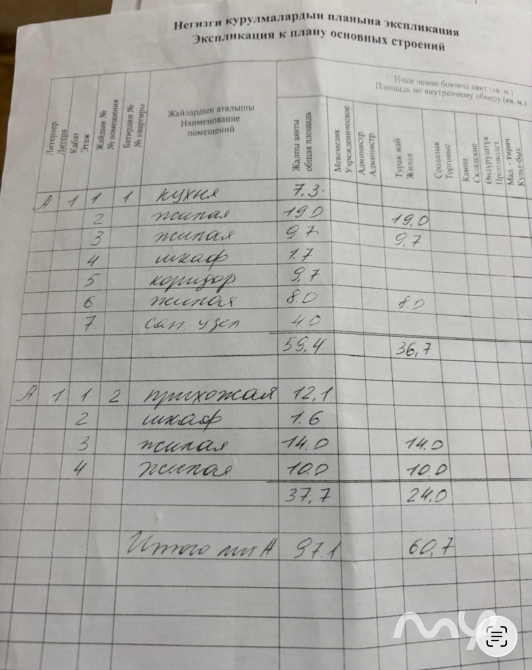 Негизги курулмалардын планына экспликация
Экспликация к плану основных строений
Литерлер
Литера
Кабат
Этаж
Жайдын №
№ помещения
Батирдин №
№ квартиры
Жайлардын аталышы
Наименование
помещений
Ички ченөө боюнча аянт (кв. м.)
Площадь по внутреннему обмеру (кв. м.)
Жалпы аянты
общая площадь
Мекемелик
Учрежденческое
Администр.
Администр.
Турак жай
Жилая
Соодалык
Торговые
Кампа
Складские
Өндүрүштүк
Производст.
Мад. - тирич.
Культ-быт.
А 1 1 1 кухня 7.3
2 жилая 19.0 19.0
3 жилая 9.7 9,7
4 шкаф 1.7
5 коридор 9,7
6 жилая 8.0 8.0
7 сан узел 4.0
59,4 36,7
А 1 1 2 прихожая 12,1
2 шкаф 1.6
3 жилая 14.0 14.0
4 жилая 10.0 10.0
37,7 24.0
Итого лит А 97.1 60,7